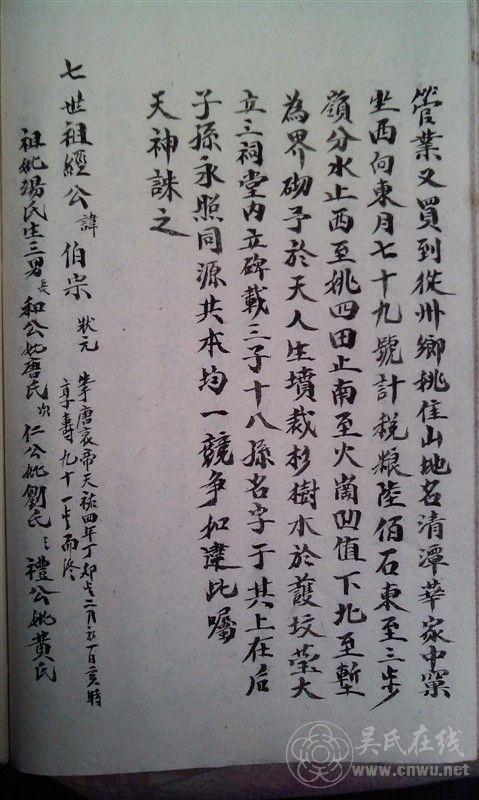 管業又買到從州鄉桃住山地名清潭華家中窠
坐西向東月七十九號計稅粮陸佰石東至三步
嶺分水止西至姚四田止南至火崗凹值下北至塹
為界砌予於天人生墳栽杉樹木於護坟塋大
立三祠堂內立碑載三子十八孫名字于其上在后
子孫永照同源共本均一競争如違此囑
天神誅之
七世祖經公諱伯宗 狀元 唐哀帝天祐四年丁卯二月初一日亥時
享壽九十一歲而終
祖妣湯氏生三男長和公妣唐氏次仁公妣劉氏三禮公妣黃氏
吴氏在线
www.cnwu.net